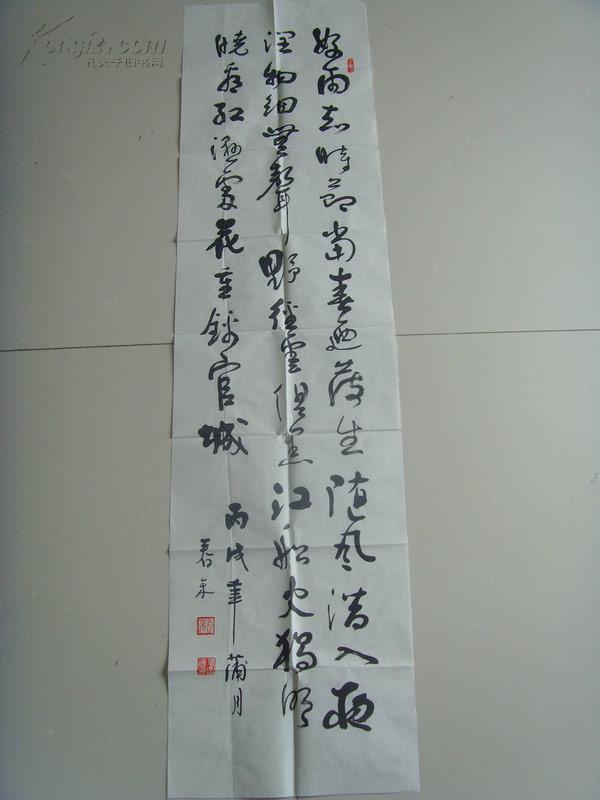 好雨知時節當春迺發生随风潛入夜
潤物細無聲野徑雲俱黑江船火獨明
曉看紅濕處花重錦官城
丙戌年蒲月
春来
Kongfz.com
孔夫子旧书网